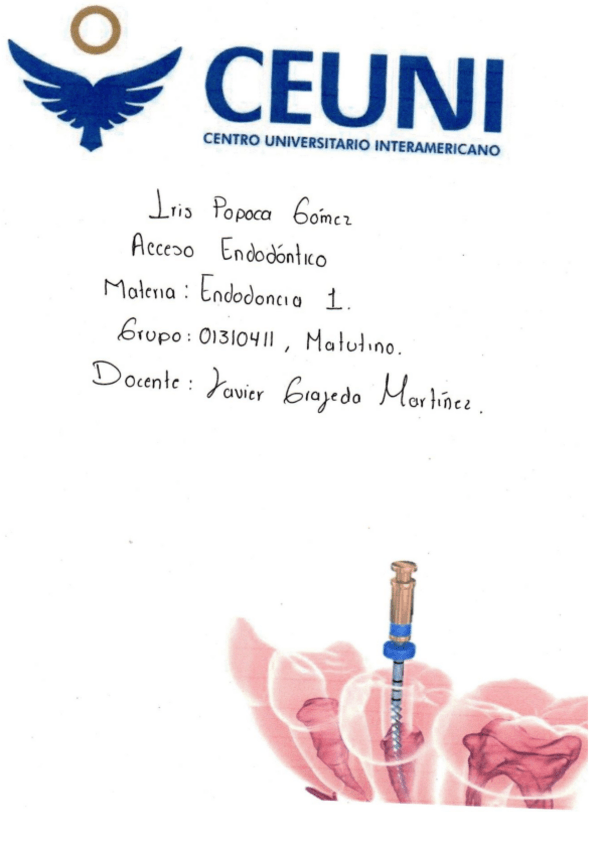 CEUNI
CENTRO UNIVERSITARIO INTERAMERICANO
Iris Popoca Gómez
Acceso Endodóntico
Materia: Endodoncia 1.
Grupo: 01310411, Matutino.
Docente: Javier Grajeda Martínez.